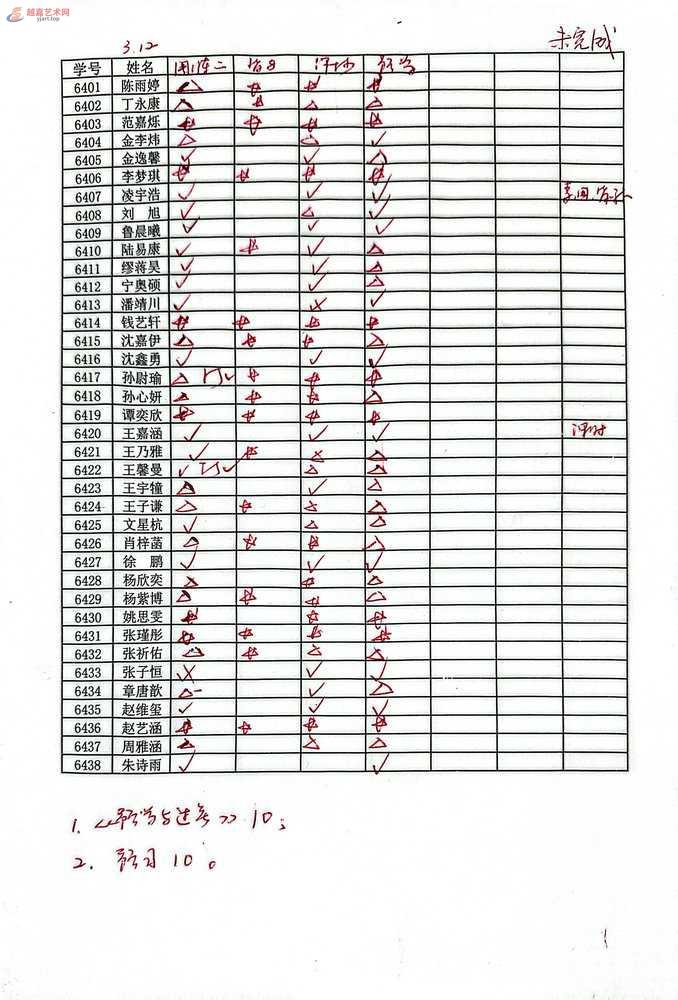 越嘉艺术网
yjart.top
3.12
未完成
学号 姓名
6401 陈雨婷 △ ☆ ☆ ☆
6402 丁永康 △ ☆ △ △
6403 范嘉烁 ☆ ☆ ☆ ☆
6404 金李炜 △ △ ✓
6405 金逸馨 ✓ ✓ △
6406 李梦琪 ☆ ☆ ☆ ☆
6407 凌宇浩 ✓ ✓ ✓
6408 刘旭 ✓ △ ✓
6409 鲁晨曦 ✓ ✓ ✓
6410 陆易康 ✓ ☆ ✓ △
6411 缪蒋昊 ✓ ✓ △
6412 宁奥硕 ✓ ✓ △
6413 潘靖川 ✓ ✗ ✓
6414 钱艺轩 ☆ ☆ ☆ ☆
6415 沈嘉伊 △ ☆ ☆ △
6416 沈鑫勇 ✓ ✓ ✓
6417 孙尉瑜 △ 订✓ ☆ ☆ ☆
6418 孙心妍 △ ☆ ☆ △
6419 谭奕欣 ☆ ☆ ☆ ☆
6420 王嘉涵 ✓ ✓ ✓
6421 王乃雅 ✓ ☆ ✗ △
6422 王馨曼 ✓ 订✓ △ △
6423 王宇犝 △ ✓ △
6424 王子谦 △ ☆ △ △
6425 文星杭 ✓ △ △
6426 肖梓菡 △ ☆ ☆ △
6427 徐鹏 ✓ ✓ ✓
6428 杨欣奕 △ ☆ △
6429 杨紫博 △ ☆ ☆ △
6430 姚思雯 ☆ ☆ ☆
6431 张瑾彤 ☆ ☆ ☆ ☆
6432 张祈佑 △ ☆ △ △
6433 张子恒 ✗ ✓ ✓
6434 章唐歆 △ ✓ △
6435 赵维玺 ✓ ✓ ✓
6436 赵艺涵 ☆ ☆ ☆ ☆
6437 周雅涵 △ △ △
6438 朱诗雨 ✓ ✓
1. 10;
2. 预习10。